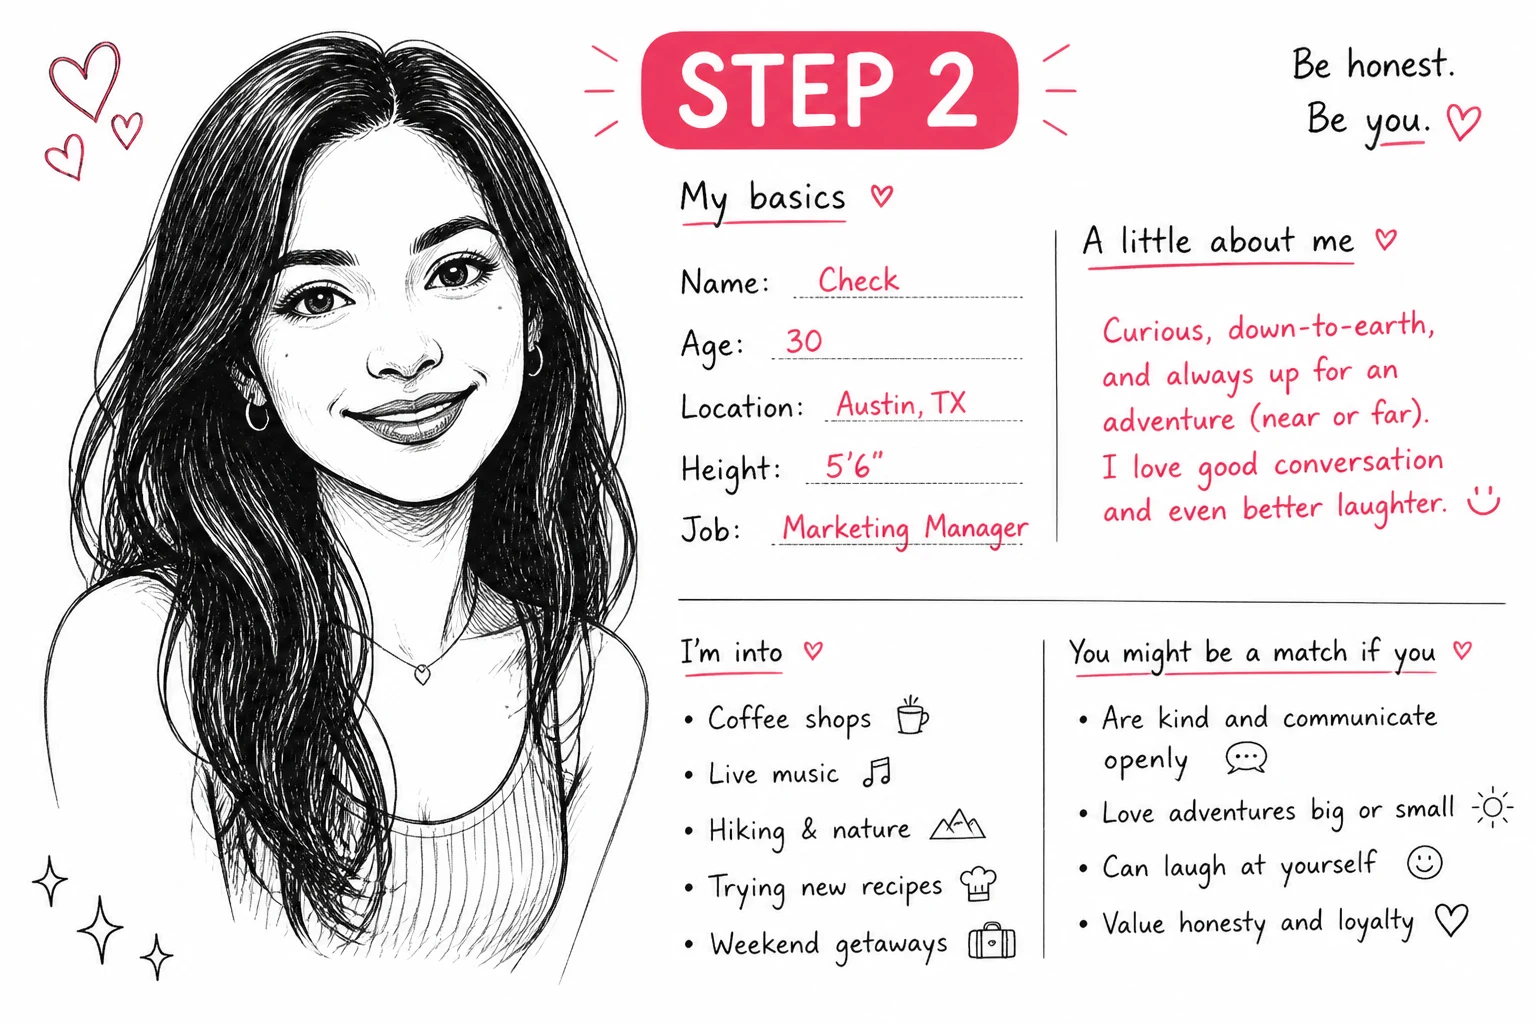 STEP 2
Be honest.
Be you.
My basics
Name: Check
Age: 30
Location: Austin, TX
Height: 5'6"
Job: Marketing Manager
A little about me
Curious, down-to-earth,
and always up for an
adventure (near or far).
I love good conversation
and even better laughter.
I'm into
• Coffee shops
• Live music
• Hiking & nature
• Trying new recipes
• Weekend getaways
You might be a match if you
• Are kind and communicate
openly
• Love adventures big or small
• Can laugh at yourself
• Value honesty and loyalty